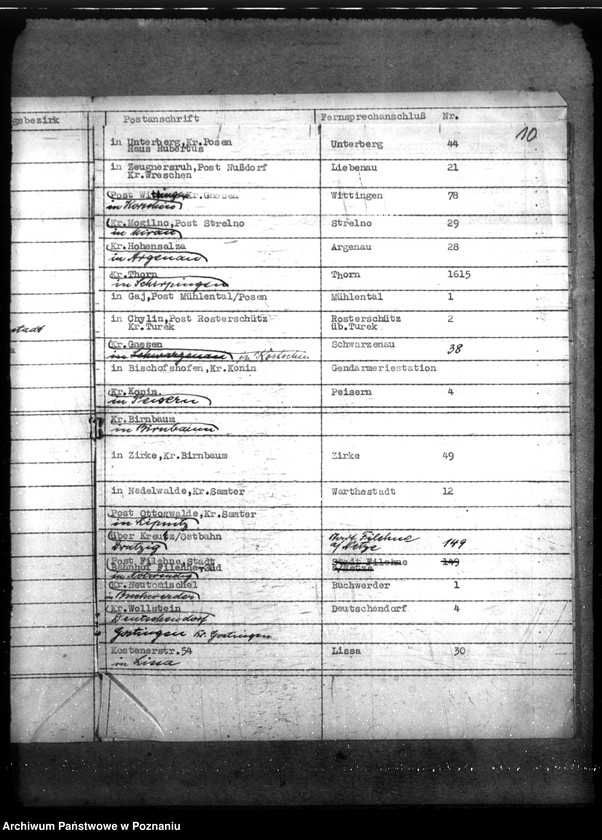 gsbezirk Postanschrift Fernsprechanschluß Nr.
10
in Unterberg,Kr.Posen Unterberg 44
Haus Hubertus
in Zeugnersruh,Post Nußdorf Liebenau 21
Kr.Wreschen
Post Kr.Gnesen Wittingen 78
in
Kr.Mogilno,Post Strelno Strelno 29
in
Kr.Hohensalza Argenau 28
in Argenau
Kr.Thorn Thorn 1615
in Scherpingen
in Gaj,Post Mühlental/Posen Mühlental 1
in Chylin,Post Rosterschütz Rosterschütz 2
stadt Kr.Turek üb.Turek
Kr.Gnesen Schwarzenau 38
in Schwarzenau in
in Bischofshofen,Kr.Konin Gendarmeriestation
Kr.Konin Peisern 4
in Peisern
Kr.Birnbaum
in Birnbaum
in Zirke,Kr.Birnbaum Zirke 49
in Nadelwalde,Kr.Samter Warthestadt 12
Post Ottoswalde,Kr.Samter
in
über Kreutz/Ostbahn Filehne 149
Dratzig a/Netze
Post Filehne,Stadt Stadt Filehne 149
Bahnhof Filehne-Süd
in
Kr.Neutomischel Buchwerder 1
in Buchwerder
Kr.Wollstein Deutschendorf 4
Deutschendorf
Gostingen Kr. Gostingen
Kostenerstr.54 Lissa 30
in Lissa
Archiwum Państwowe w Poznaniu